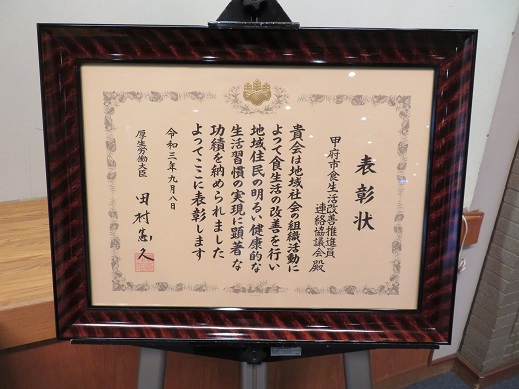 表彰状
甲府市食生活改善推進員
連絡協議会殿
貴会は地域社会の組織活動に
よって食生活の改善を行い
地域住民の明るい健康的な
生活習慣の実現に顕著な
功績を納められました
よってここに表彰します
令和三年九月八日
厚生労働大臣 田村憲久